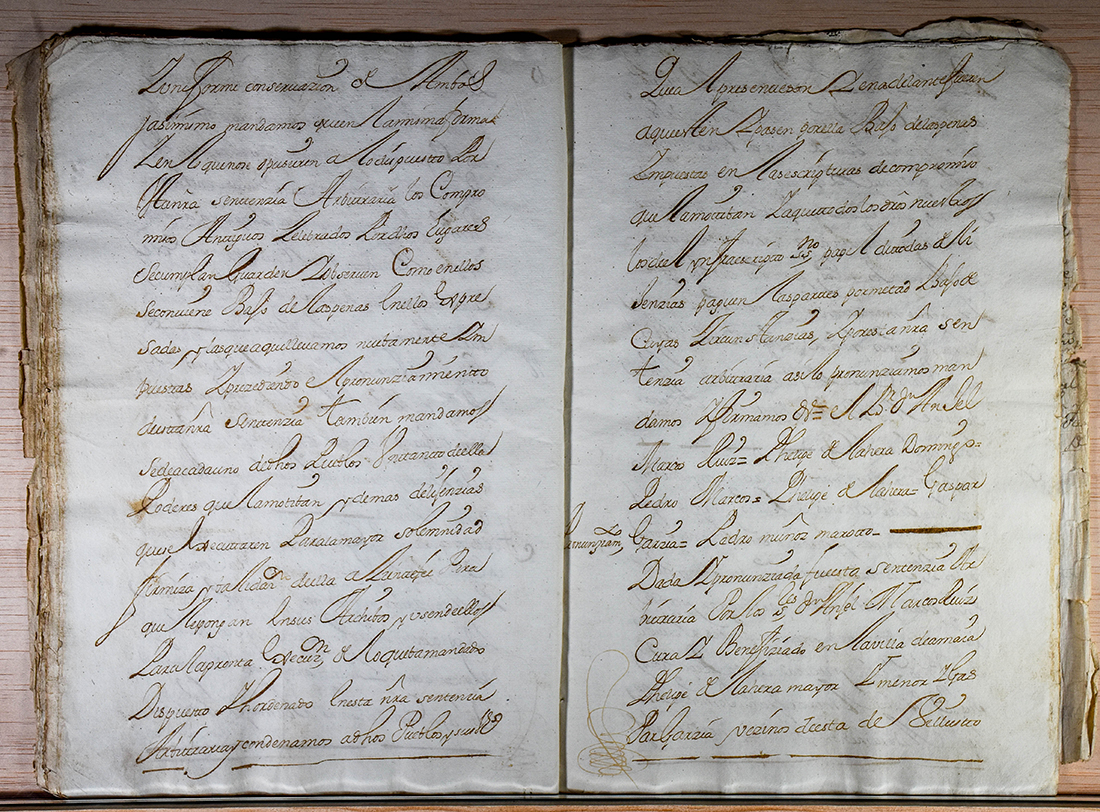 Conforme conservazion de Ambos
y asimismo mandamos que en la misma forma
Y en lo que no se opusieren a lo dispuesto Por
Esta nra sentenzia Arbitraria los Compro
misos Antiguos Zelebrados Por dhos lugares
Se cumplan Guarden Y observen Como en ellos
Se contiene Bajo de las penas En ellos Expre
sadas y las que aqui llevamos nuebamente Ym
puestas Y puzediendo el pronunziamiento
de esta nra Sentenzia tambien mandamos
Se de a cada uno de dhos Pueblos Un tanto de ella
Poderes que la motiban y demas delijenzias
que se Executaren Para la mayor solemnidad
firmiza y balidazn de ella a la
que Se pongan En sus Archibos y usen de ellos
Para la pronta Execuzn de lo que ba mandado
Dispuesto Y hordenado En esta nra sentenzia
Arbitraria y condenamos a dhos Pueblos y sus
que A presente son Y en adelante fueren
a que esten Y pasen por ella Bajo de las penas
Ympuestas en las escripturas de compromiso
que la motiban Y a que todos los dros nuestros
los de el ynfraescripto no papel y de li
zenzias paguen las partes por metad Y bajo de
Cuyas Zircunstanzias, Y por esta nra sen
tenzia arbitraria asi lo pronunziamos man
damos Y firmamos = el Br. dn Anjel
Marco Ruiz = Phelipe de la hera Domingo =
Pedro Marcos = Phelipe de la hera = Gaspar
Pronunziam.to Garzia = Pedro muñoz maroto =
Dada Y pronunziada fue esta sentenzia Ar
bitraria Por los dn Anjl Marco Ruiz
Cura Y Benefiziado en la villa de amaia
Phelipe de la hera mayor Y menor Y Gas
Par Garzia vezinos de esta de